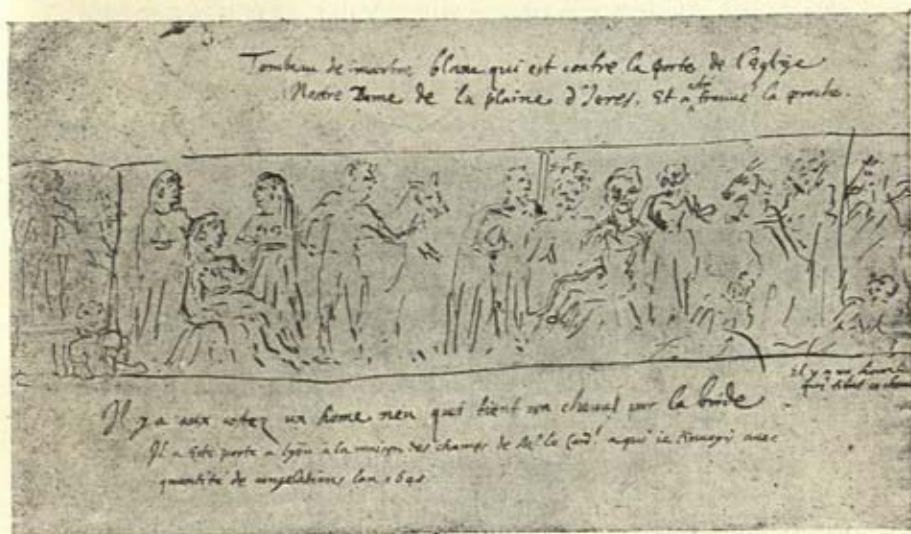 Tombeau de marbre blanc qui est contre la porte de l'eglise
Nostre Dame de la plaine d'Ieres. Et a esté trouvé la proche.
Il y a aux costez un home neu qui tient un cheval par la bride
Il a esté porté a lyon a la maison des champs de Mr le Card.l a qui ie l'envoyé avec
quantité de congelations lan 1640
il y a un
qui